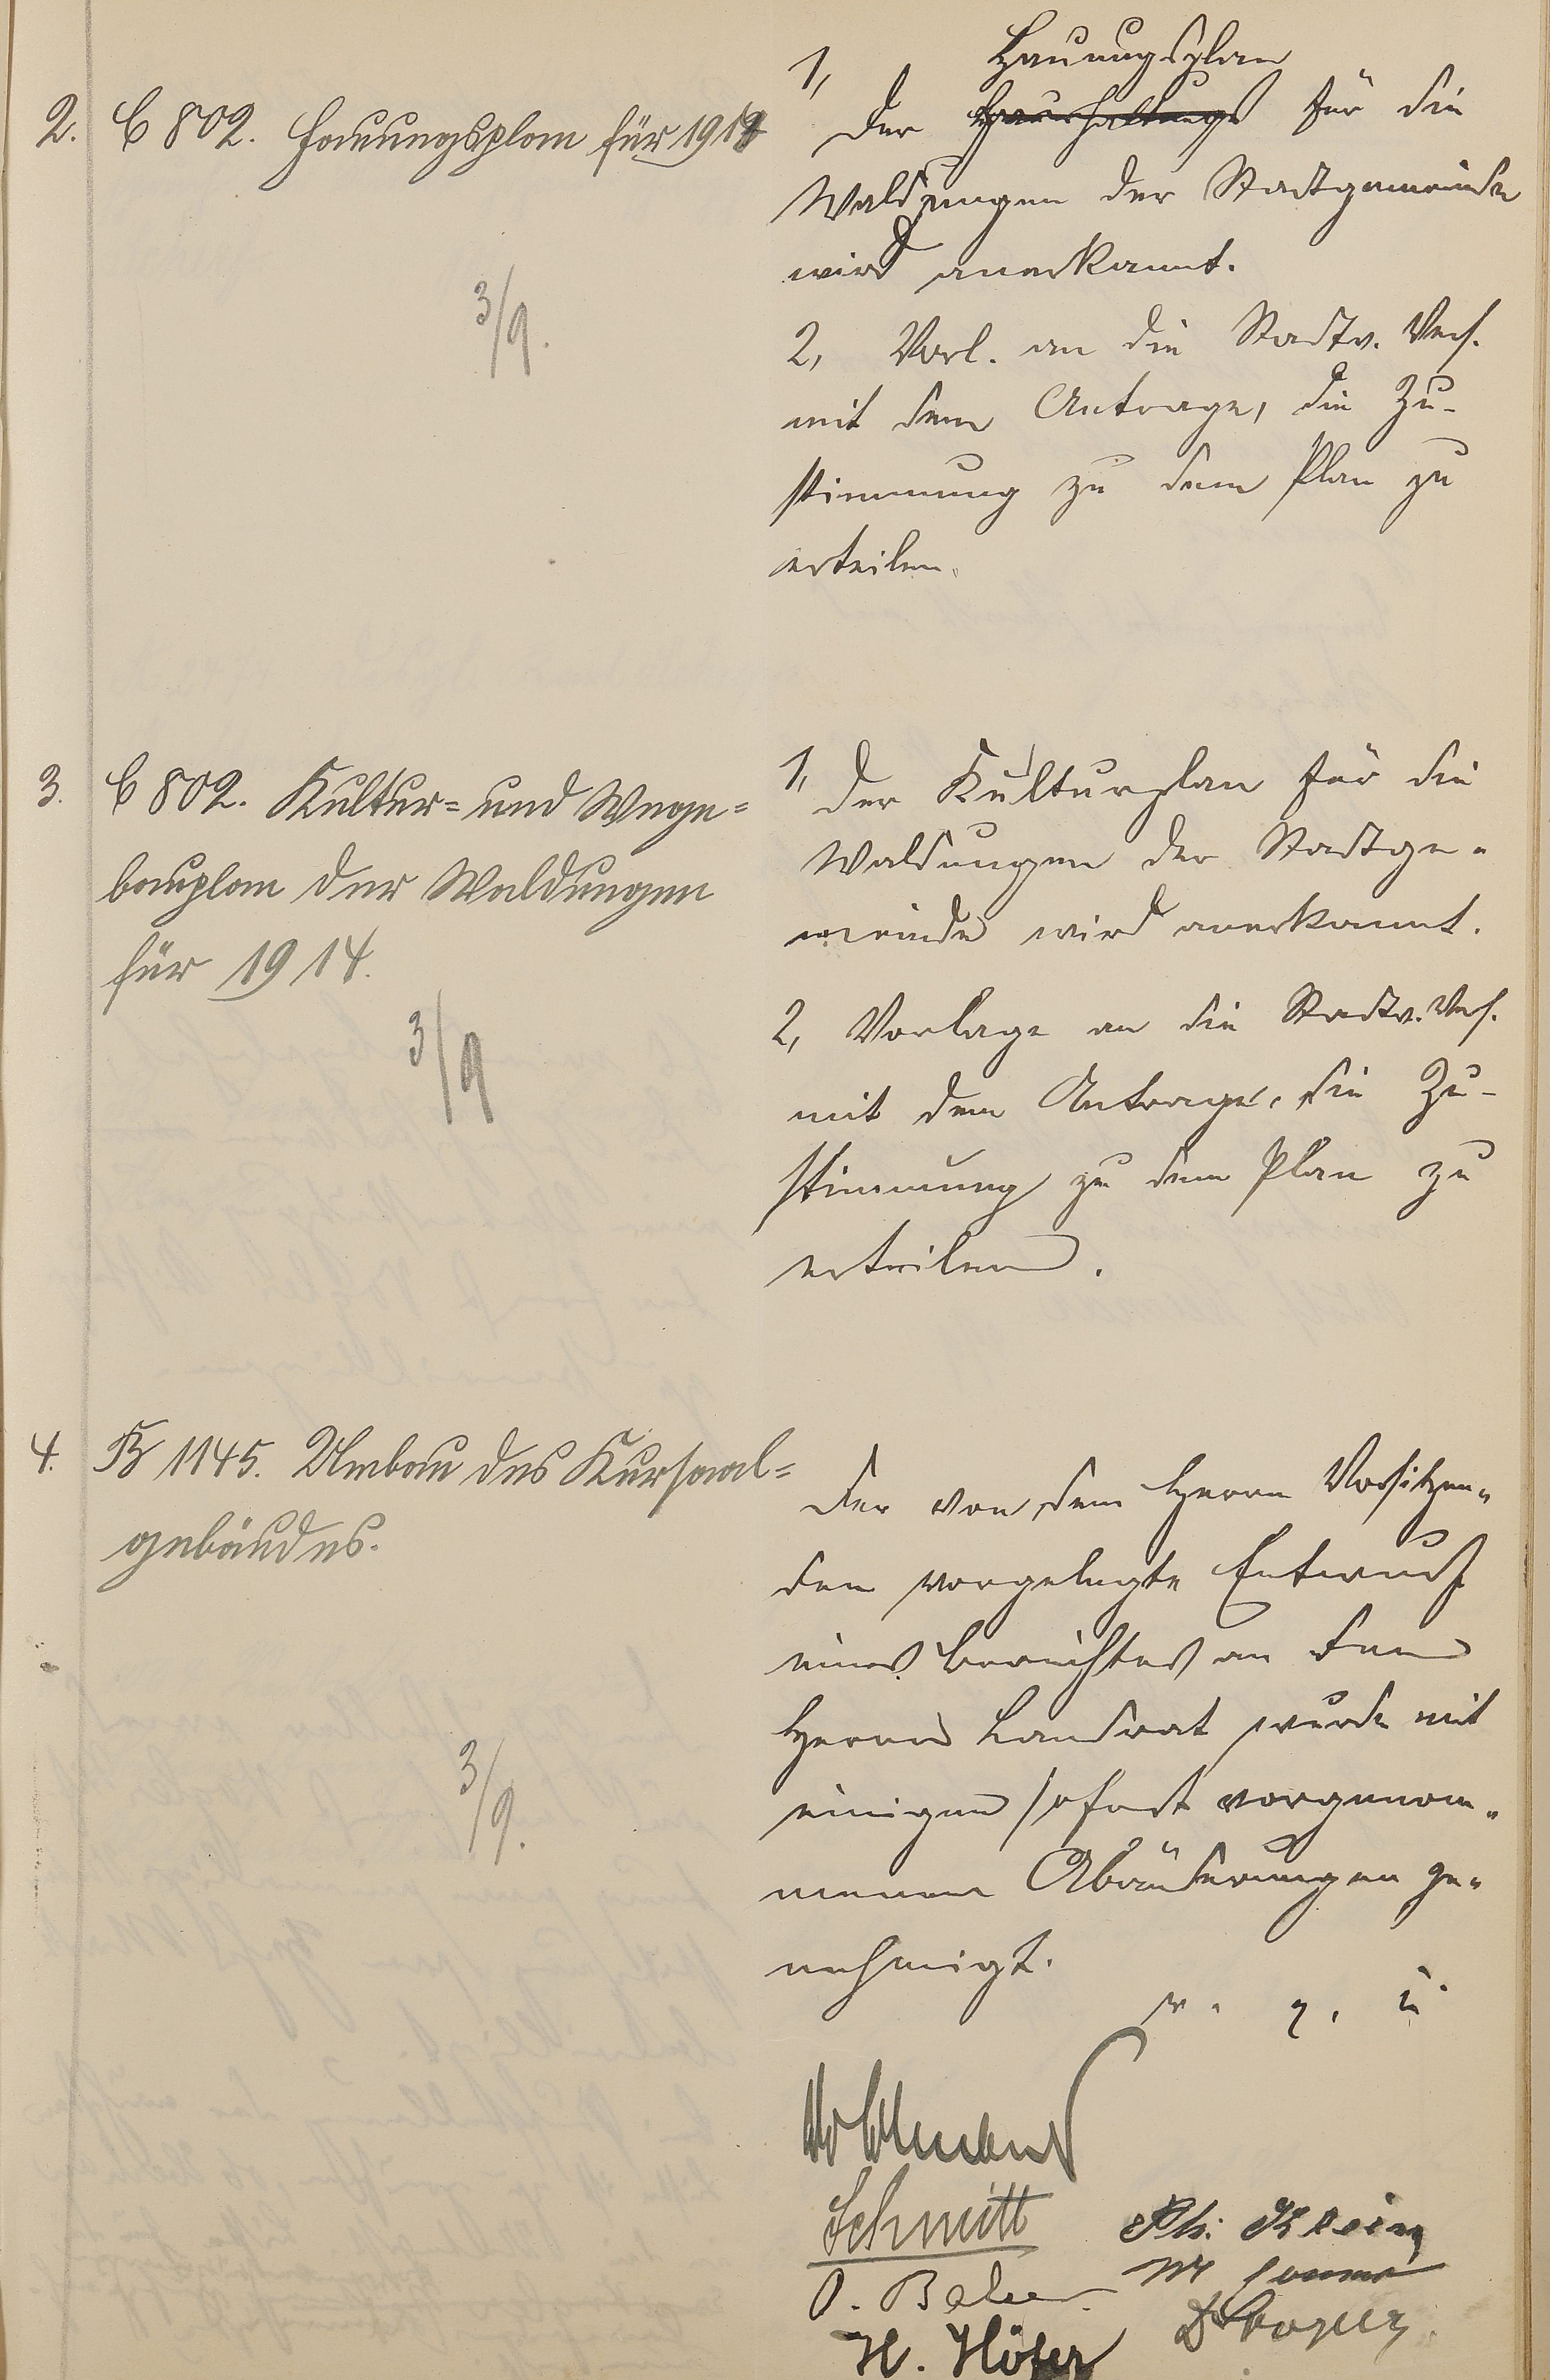 2. C 802. Hauungsplan für 1914
3/9.
1, Hauungsplan
Der Haushaltungs für die
Waldungen der Stadtgemeinde
wird anerkannt.
2, Vorl. an die Stadtv. Vers.
mit dem Antrage, die Zu-
stimmung zu dem Plan zu
erteilen.
3. C 802. Kultur= und Wege=
bauplan der Waldungen
für 1914.
3/9
1, Der Kulturplan für die
Waldungen der Stadtge-
meinde wird anerkannt.
2, Vorlage an die Stadtv. Vers.
mit dem Antrage, die Zu-
stimmung zu dem Plan zu
erteilen.
4. B 1145. Umbau des Kursaal=
gebäudes.
3/9.
Der von dem Herrn Vorsitzen-
den vorgelegte Entwurf
eines Berichtes an den
Herrn Landrat wurde mit
einigen sofort vorgenom-
menen Abänderungen ge-
nehmigt.
v. g. u.
Schmitt
Ph. Klein
O.
H. Höfer